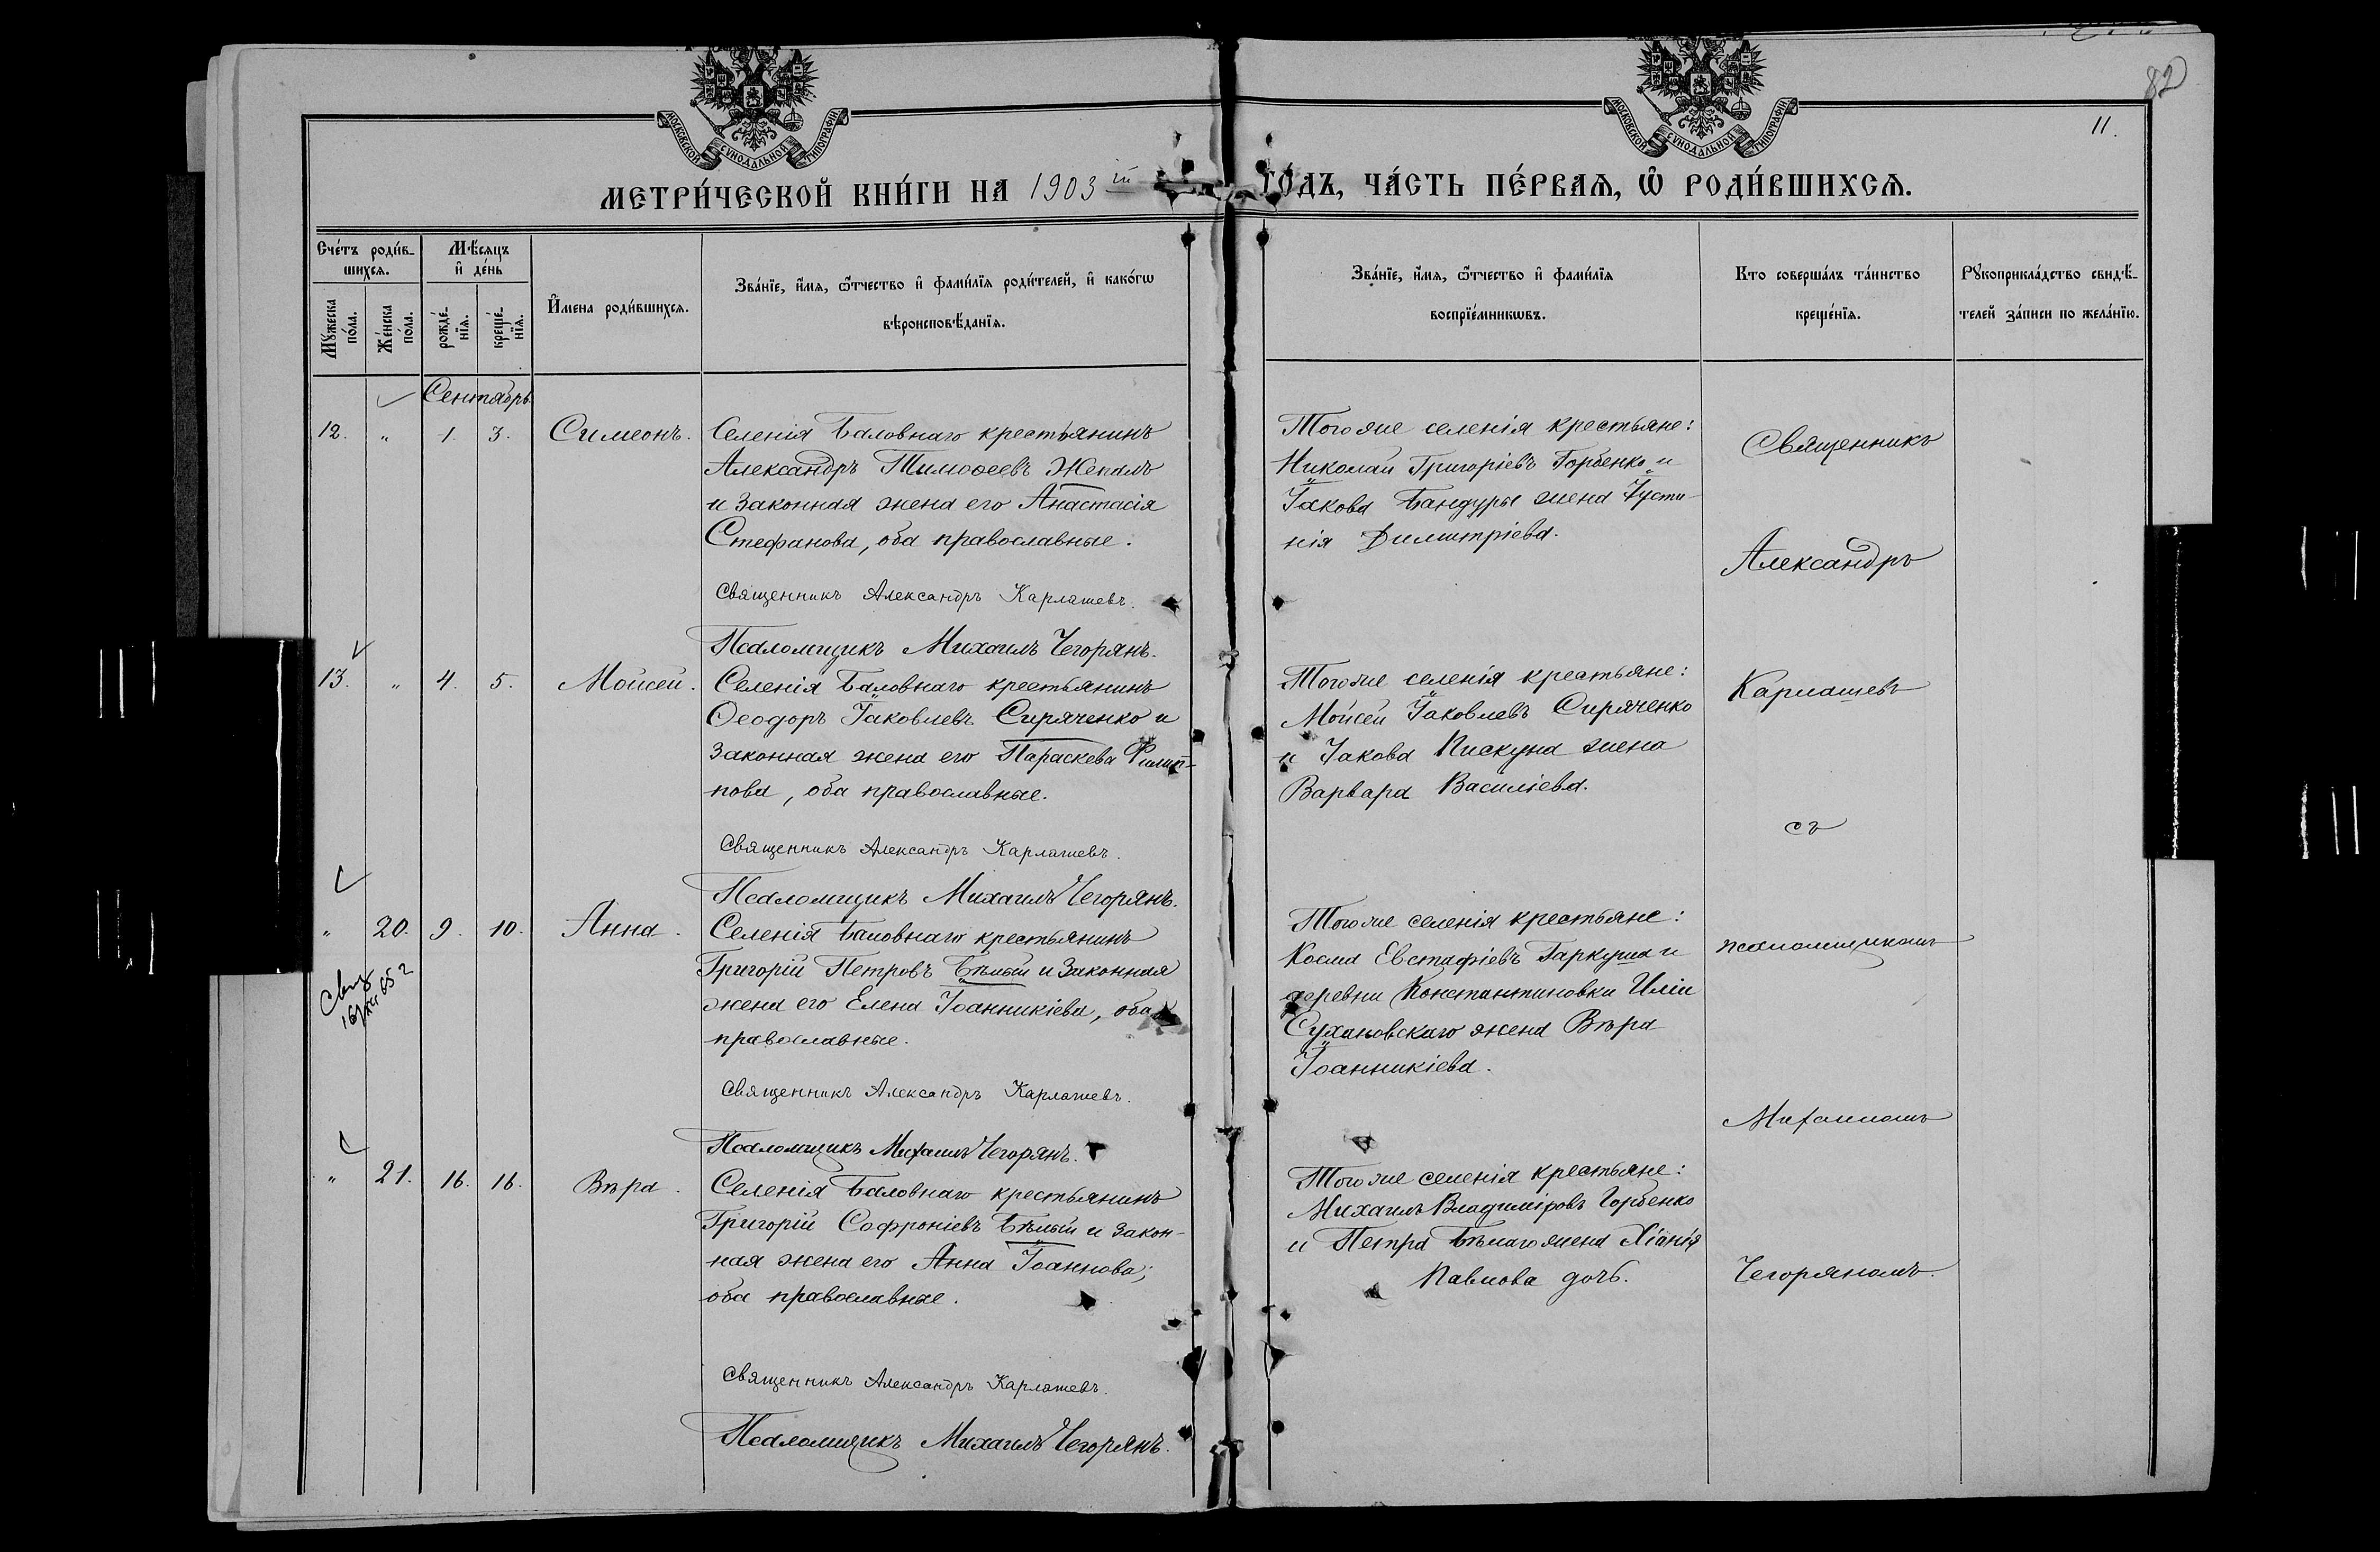 82
11.
МОСКОВСКОЙ СѴНОДАЛЬНОЙ ТИПОГРАФІИ
МОСКОВСКОЙ СѴНОДАЛЬНОЙ ТИПОГРАФІИ
МЕТРИ́ЧЕСКОЙ КНИ́ГИ НА 1903 ій ГО́ДЪ, ЧА́СТЬ ПЕ́РВАѦ, Ѡ҆ РОДИ́ВШИХСѦ.
Сче́тъ роди́в-
шихсѧ.
Мꙋ́жеска
по́ла.
Же́нска
по́ла.
Мѣ́сѧцъ
и҆ де́нь
рожде́-
нїѧ.
креще́-
нїѧ.
И҆мена роди́вшихсѧ.
Зва́нїе, и҆́мѧ, ѻ҆́тчество и҆ фами́лїѧ роди́телей, и҆ како́гѡ
вѣроисповѣ́данїѧ.
Зва́нїе, и҆́мѧ, ѻ҆́тчество и҆ фами́лїѧ
воспрїе́мникѡвъ.
Кто соверша́лъ та́инство
креще́нїѧ.
Рꙋкоприкла́дство свидѣ́-
телей за́писи по жела́нїю.
Сентябрь.
12. " 1. 3. Симеонъ.
Селенія Баловнаго крестьянинъ
Александръ Тимоѳеевъ Жекалъ
и законная жена его Анастасія
Стефанова, оба православные.
Священникъ Александръ Карлашевъ.
Псаломщикъ Михаилъ Чегорянъ.
Тогоже селенія крестьяне:
Николай Григоріевъ Горбенко и
Іакова Бандуры жена Іусти-
нія Димитріева.
13. " 4. 5. Моисей.
Селенія Баловнаго крестьянинъ
Ѳеодоръ Іаковлевъ Сиряченко и
законная жена его Параскева Филип-
пова, оба православные.
Священникъ Александръ Карлашевъ.
Псаломщикъ Михаилъ Чегорянъ.
Тогоже селенія крестьяне:
Мойсей Іаковлевъ Сиряченко
и Іакова Пискуна жена
Варвара Василіева.
" 20. 9. 10. Анна.
Селенія Баловнаго крестьянинъ
Григорій Петровъ Бѣлый и законная
жена его Елена Іоанникіева, оба
православные.
Священникъ Александръ Карлашевъ.
Псаломщикъ Михаилъ Чегорянъ.
Тогоже селенія крестьяне:
Косма Евстафіевъ Гаркуша и
деревни Константиновки Иліи
Сухановскаго жена Вѣра
Іоанникіева.
" 21. 16. 16. Вѣра.
Селенія Баловнаго крестьянинъ
Григорій Софроніевъ Бѣлый и закон-
ная жена его Анна Іоаннова;
оба православные.
Священникъ Александръ Карлашевъ.
Псаломщикъ Михаилъ Чегорянъ.
Тогоже селенія крестьяне:
Михаилъ Владиміровъ Горбенко
и Петра Бѣлаго жена
Павлова дочь.
Священникъ
Александръ
Карлашевъ
съ
псаломщикомъ
Михаиломъ
Чегоряномъ.